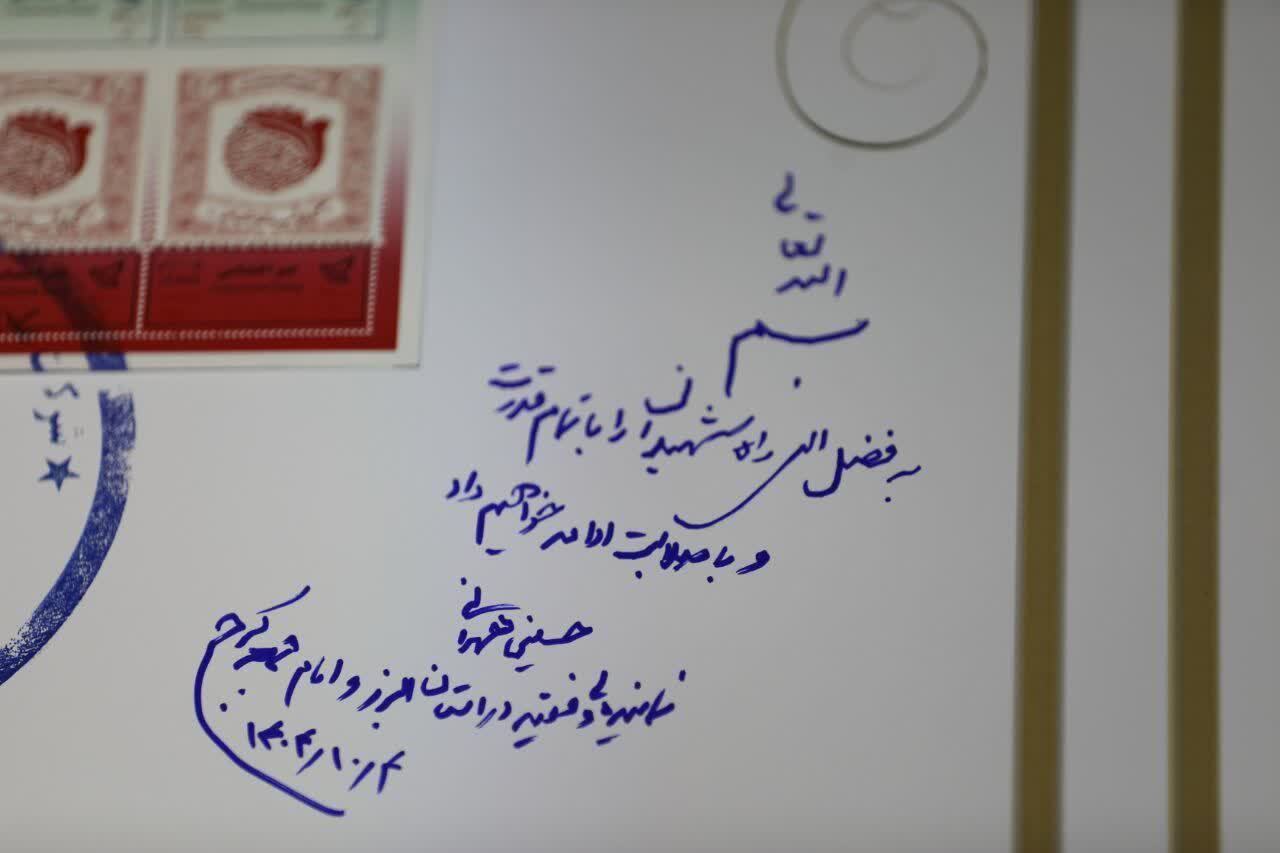 بسم
الله
تعالی
به فضل الهی راه شهیدان را با تمام قدرت
و با صلابت ادامه خواهیم داد
حسینی همدانی
نماینده ولی فقیه در استان البرز و امام جمعه کرج
۱۴۰۴/۱۰/۴